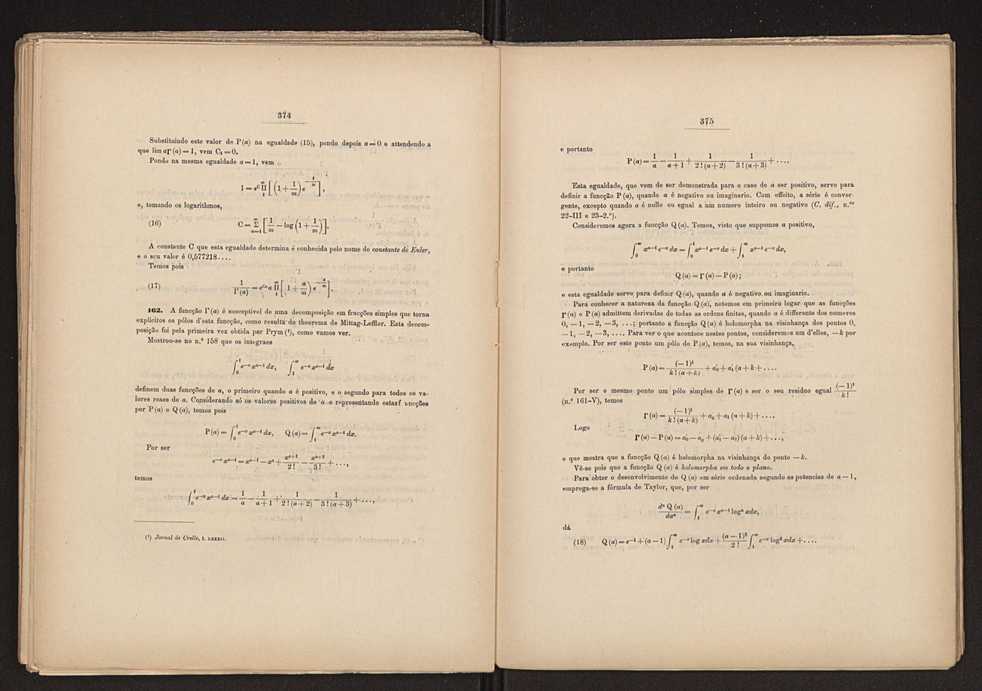 374
Substituindo este valor de P(a) na egualdade (15), pondo depois a = 0 e attendendo a
que lim aΓ(a) = 1, vem C₁ = 0.
Pondo na mesma egualdade a = 1, vem
1 = e^C Π_1^∞ [(1 + 1/m) e^{-1/m}],
e, tomando os logarithmos,
(16) C = Σ_{m=1}^∞ [1/m − log(1 + 1/m)].
A constante C que esta egualdade determina é conhecida pelo nome de constante de Euler,
e o seu valor é 0,577218....
Temos pois
(17) 1/Γ(a) = e^{Ca} a Π_1^∞ [(1 + a/m) e^{-a/m}].
162. A funcção Γ(a) é susceptivel de uma decomposição em fracções simples que torna
explicitos os pólos d'esta funcção, como resulta do theorema de Mittag-Leffler. Esta decom-
posição foi pela primeira vez obtida por Prym (¹), como vamos ver.
Mostrou-se no n.º 158 que os integraes
∫_0^1 e^{-x} x^{a-1} dx, ∫_1^∞ e^{-x} x^{a-1} dx
definem duas funcções de a, o primeiro quando a é positivo, e o segundo para todos os va-
lores reaes de a. Considerando só os valores positivos de a e representando estas funcções
por P(a) e Q(a), temos pois
P(a) = ∫_0^1 e^{-x} x^{a-1} dx, Q(a) = ∫_1^∞ e^{-x} x^{a-1} dx.
Por ser
e^{-x} x^{a-1} = x^{a-1} − x^a + x^{a+1}/2! − x^{a+2}/3! + ...,
temos
∫_0^1 e^{-x} x^{a-1} dx = 1/a − 1/(a+1) + 1/(2!(a+2)) − 1/(3!(a+3)) + ...,
(¹) Jornal de Crelle, t. LXXXII.
375
e portanto
P(a) = 1/a − 1/(a+1) + 1/(2!(a+2)) − 1/(3!(a+3)) + ....
Esta egualdade, que vem de ser demonstrada para o caso de a ser positivo, serve para
definir a funcção P(a), quando a é negativo ou imaginario. Com effeito, a série é conver-
gente, excepto quando a é nullo ou egual a um numero inteiro ou negativo (C. dif., n.ºˢ
22-III e 23-2.º).
Consideremos agora a funcção Q(a). Temos, visto que suppomos a positivo,
∫_0^∞ x^{a-1} e^{-x} dx = ∫_0^1 x^{a-1} e^{-x} dx + ∫_1^∞ x^{a-1} e^{-x} dx,
e portanto
Q(a) = Γ(a) − P(a);
e esta egualdade serve para definir Q(a), quando a é negativo ou imaginario.
Para conhecer a natureza da funcção Q(a), notemos em primeiro logar que as funcções
Γ(a) e P(a) admittem derivadas de todas as ordens finitas, quando a é differente dos numeros
0, −1, −2, −3, ...; portanto a funcção Q(a) é holomorpha na visinhança dos pontos 0,
−1, −2, −3, .... Para ver o que acontece nestes pontos, consideremos um d'elles, −k por
exemplo. Por ser este ponto um pólo de P(a), temos, na sua visinhança,
P(a) = (−1)^k/(k!(a+k)) + a'₀ + a'₁(a+k) + ....
Por ser o mesmo ponto um pólo simples de Γ(a) e ser o seu residuo egual (−1)^k/k!
(n.º 161-V), temos
Γ(a) = (−1)^k/(k!(a+k)) + a₀ + a₁(a+k) + ....
Logo
Γ(a) − P(a) = a'₀ − a₀ + (a'₁ − a₁)(a+k) + ...,
o que mostra que a funcção Q(a) é holomorpha na visinhança do ponto −k.
Vê-se pois que a funcção Q(a) é holomorpha em todo o plano.
Para obter o desenvolvimento de Q(a) em série ordenada segundo as potencias de a − 1,
emprega-se a fórmula de Taylor, que, por ser
d^n Q(a)/da^n = ∫_1^∞ e^{-x} x^{a-1} log^n xdx,
dá
(18) Q(a) = e^{-1} + (a−1) ∫_1^∞ e^{-x} log xdx + (a−1)²/2! ∫_1^∞ e^{-x} log² xdx + ....